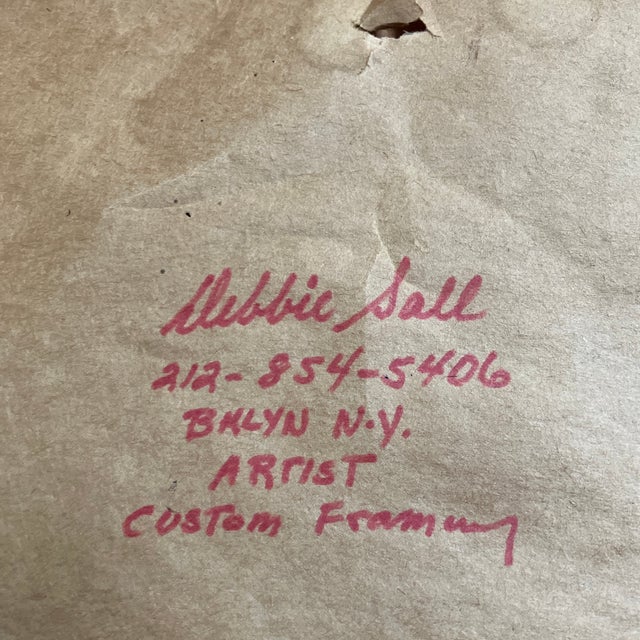 Debbie Sall
212-854-5406
BKLYN N.Y.
ARTIST
CUSTOM Framing